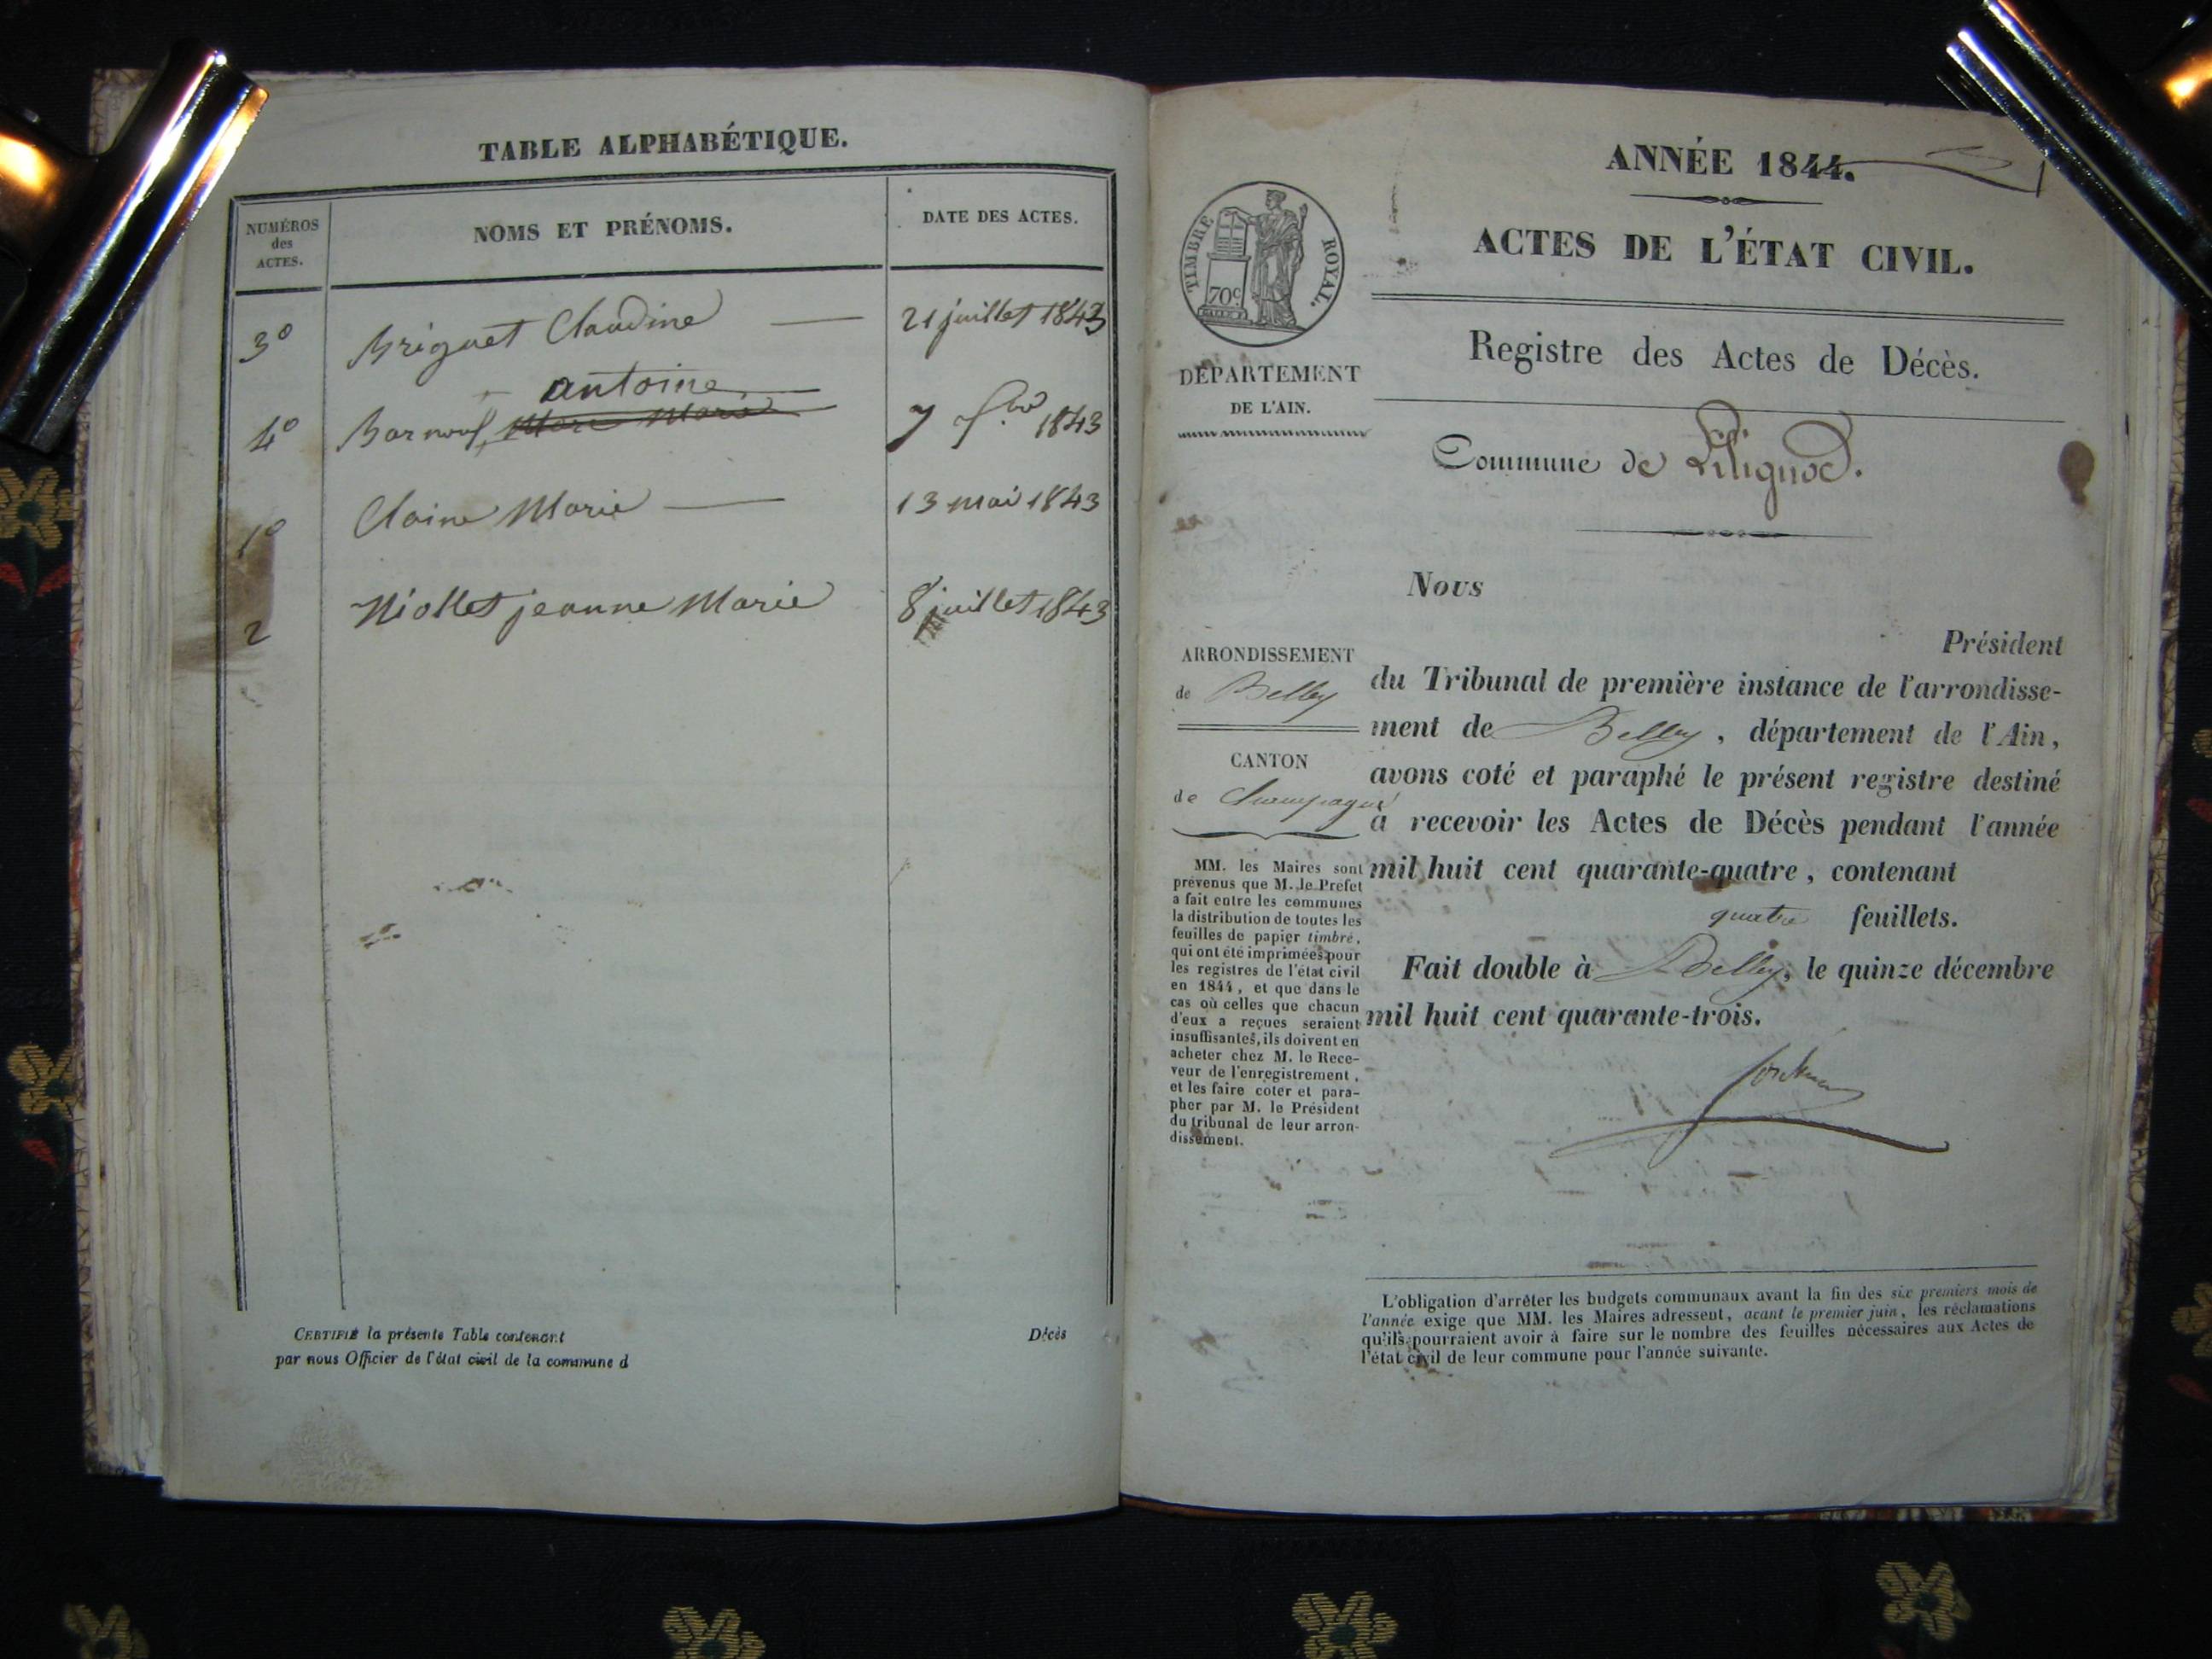 TABLE ALPHABÉTIQUE.
NUMÉROS
des
ACTES.
NOMS ET PRÉNOMS.
DATE DES ACTES.
3º Briguet Claudine 21 juillet 1843
antoine
4º 7 1843
1º Claine Marie 13 mai 1843
2 Niollet jeanne Marie 8 juillet 1843
CERTIFIÉ la présente Table contenant Décès
par nous Officier de l'état civil de la commune d
ANNÉE 1844.
ACTES DE L'ÉTAT CIVIL.
TIMBRE ROYAL.
70c
Registre des Actes de Décès.
DÉPARTEMENT
DE L'AIN.
Commune de Lilignod.
Nous
Président
du Tribunal de première instance de l'arrondisse-
ment de Belley, département de l'Ain,
avons coté et paraphé le présent registre destiné
à recevoir les Actes de Décès pendant l'année
mil huit cent quarante-quatre, contenant
quatre feuillets.
Fait double à Belley, le quinze décembre
mil huit cent quarante-trois.
ARRONDISSEMENT
de Belley
CANTON
de Champagne
MM. les Maires sont
prévenus que M. le Préfet
a fait entre les communes
la distribution de toutes les
feuilles de papier timbré,
qui ont été imprimées pour
les registres de l'état civil
en 1844, et que dans le
cas où celles que chacun
d'eux a reçues seraient
insuffisantes, ils doivent en
acheter chez M. le Rece-
veur de l'enregistrement,
et les faire coter et para-
pher par M. le Président
du tribunal de leur arron-
dissement.
L'obligation d'arrêter les budgets communaux avant la fin des six premiers mois de
l'année exige que MM. les Maires adressent, avant le premier juin, les réclamations
qu'ils pourraient avoir à faire sur le nombre des feuilles nécessaires aux Actes de
l'état civil de leur commune pour l'année suivante.